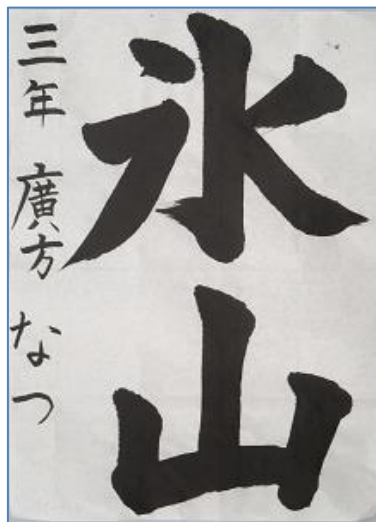 氷山
三年 廣方 なつ